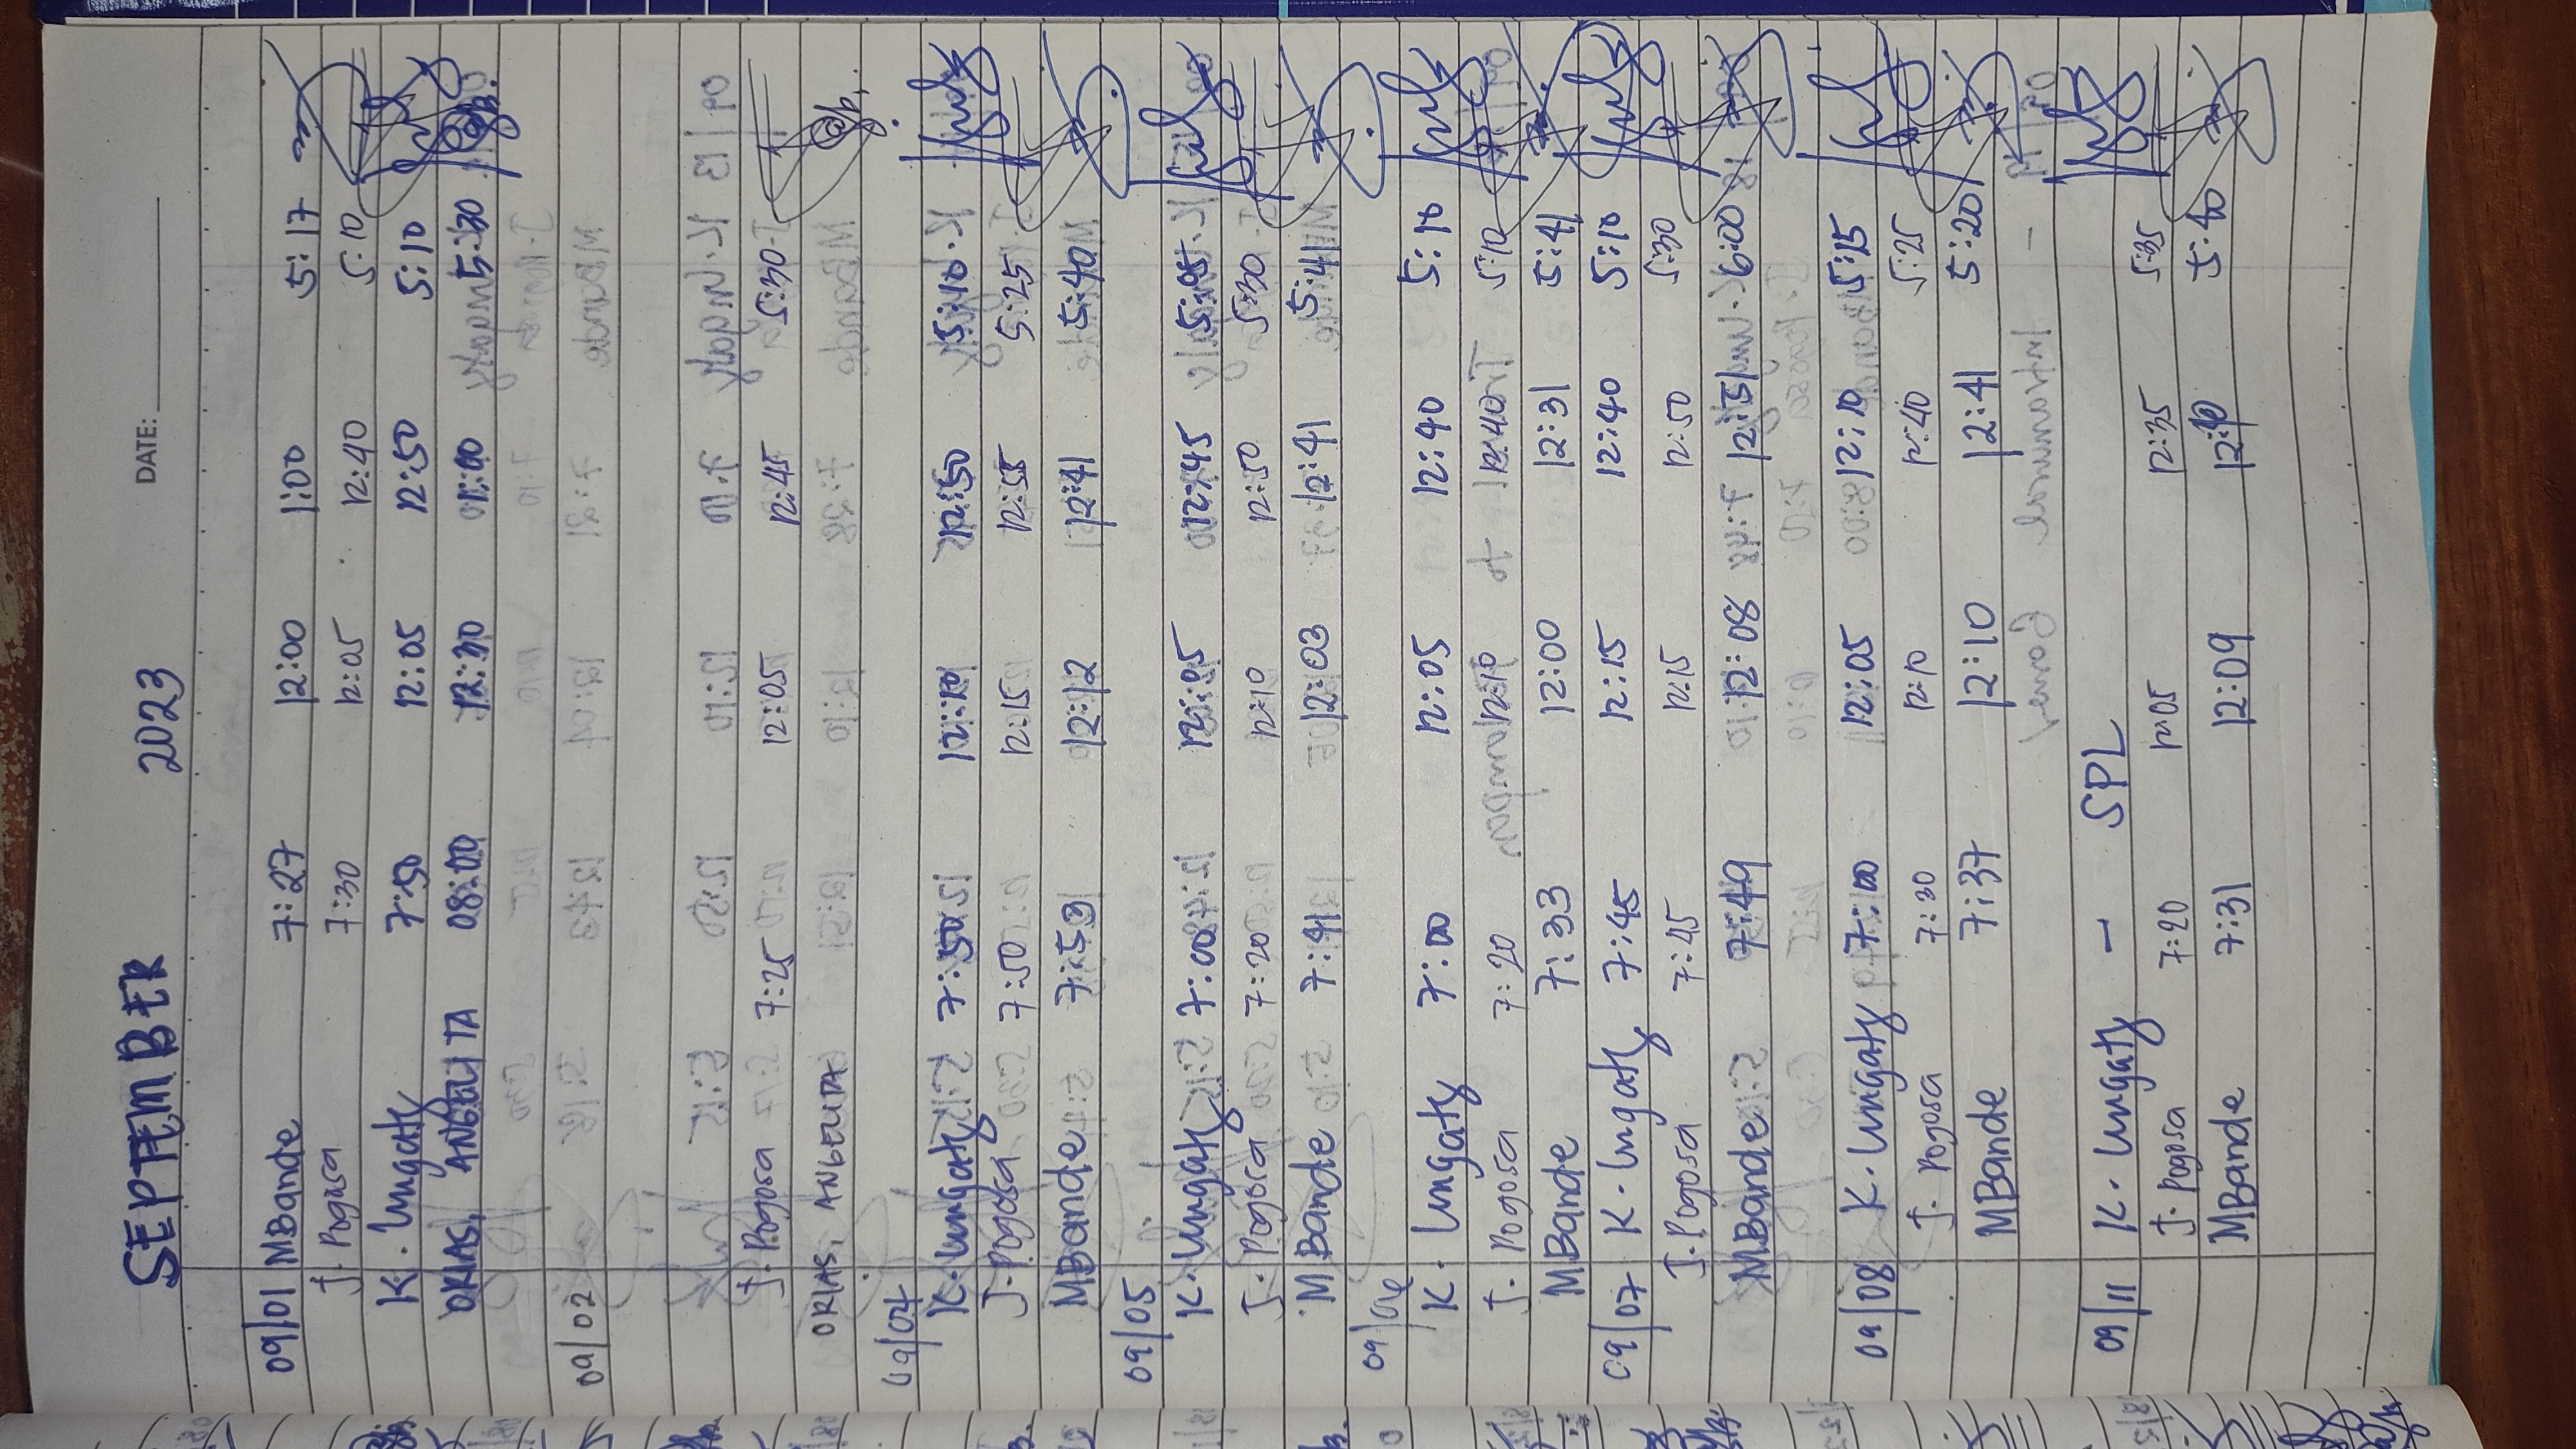 DATE:
SEPTEMBER 2023
09/01 MBande 7:27 12:00 1:00 5:17
J. Pogosa 7:30 12:05 12:40 5:10
K. Lungaty 7:50 12:05 12:50 5:10
ORIAS, ANGELITA 08:00 12:30 01:00 5:30
09/02
J. Pogosa 7:25 12:05 12:45 5:30
ORIAS, ANGELITA
09/04
K. Lungaty 7:50 12:10 12:50 5:10
J. Pogosa 7:50 12:15 12:55 5:25
MBande 7:53 12:12 12:41 5:40
09/05
K. Lungaty 7:00 12:05 12:45 5:05
J. Pogosa 7:20 12:10 12:50 5:30
MBande 7:41 12:03 12:41 5:41
09/06
K. Lungaty 7:00 12:05 12:40 5:10
J. Pogosa 7:20 12:10 12:40 5:10
MBande 7:33 12:00 12:31 5:41
09/07 K. Lungaty 7:45 12:15 12:40 5:10
J. Pogosa 7:45 12:15 12:50 5:30
MBande 7:49 12:08 12:51 6:00
09/08 K. Lungaty 7:00 12:05 12:10 5:15
J. Pogosa 7:20 12:10 12:40 5:25
MBande 7:37 12:10 12:41 5:20
09/11 K. Lungaty - SPL
J. Pogosa 7:20 12:05 12:35 5:35
MBande 7:31 12:09 12:40 5:40